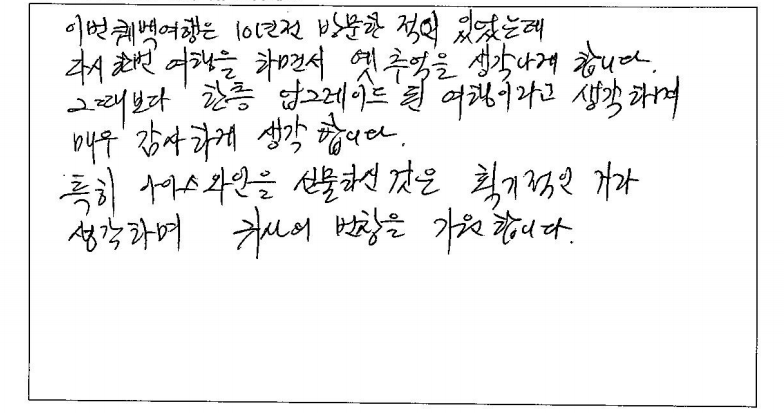 이번 퀘벡여행은 10년전 방문한 적이 있었는데
다시한번 여행을 하면서 옛 추억을 생각나게 합니다.
그때보다 한층 업그레이드 된 여행이라고 생각하며
매우 감사하게 생각 합니다.
특히 아이스와인을 선물하신 것은 획기적인 거라
생각하며 귀사의 번창을 기원합니다.